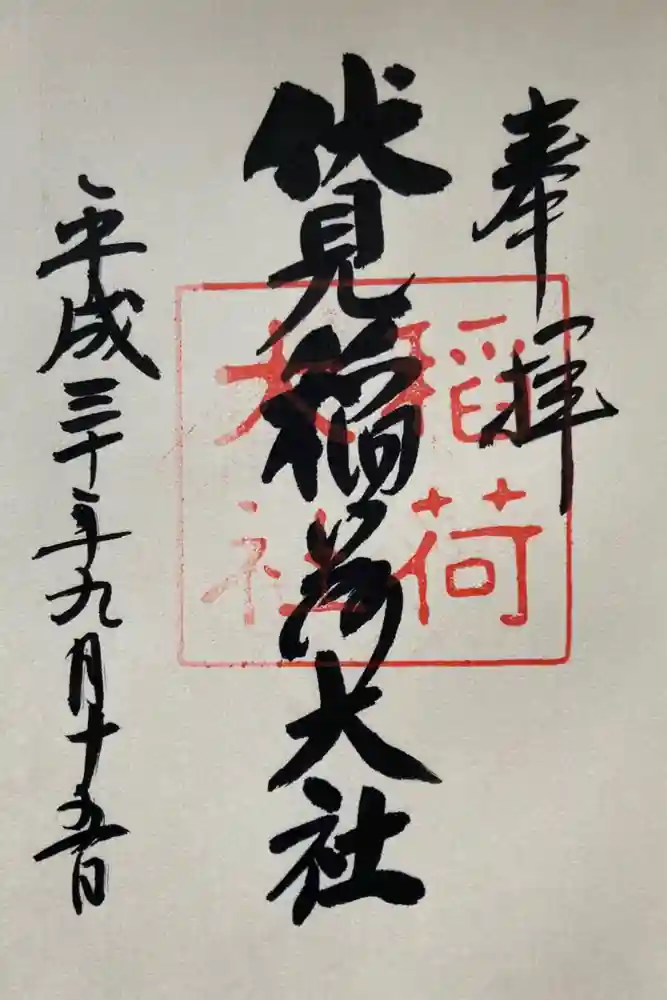 奉拝
伏見稲荷大社
稲荷
大社
平成三十年九月十五日